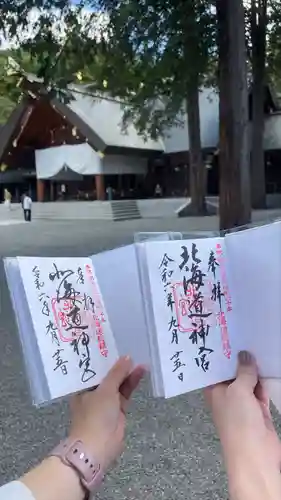 奉拝
北海道神宮
令和二年九月廿五日
奉拝
北海道神宮
令和二年九月廿五日